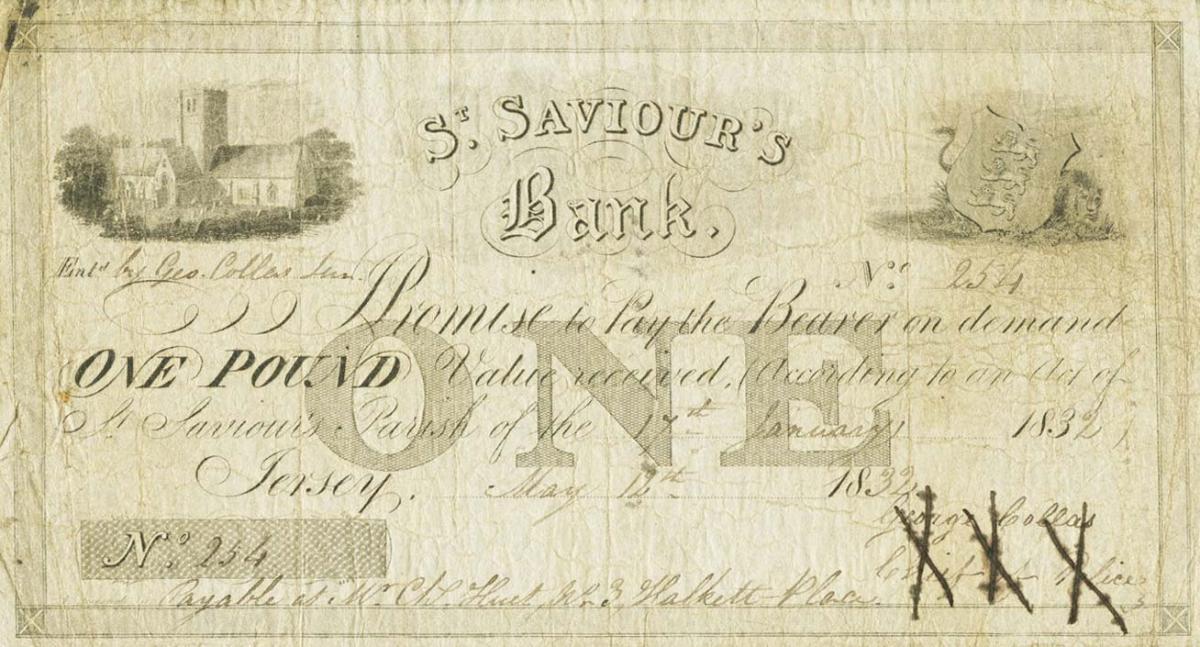 St. SAVIOUR'S
Bank.
Entd. by Geo. Collas Jun.
No. 254
I Promise to Pay the Bearer on demand
ONE POUND Value received, (According to an Act of
St Saviour's Parish of the 17th January 1832)
ONE
Jersey, May 12th 1832
George Collas
No. 254
Payable at Mr. Chs. Huet, No. 3, Halkett Place.